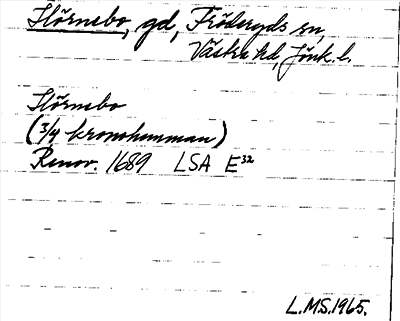 Hörnebo, gd, Fröderyds sn,
Västra hd, Jönk. l.
Hörnebo
(3/4 kronohemman)
Renov. 1689 LSA E32
L.M.S. 1965.